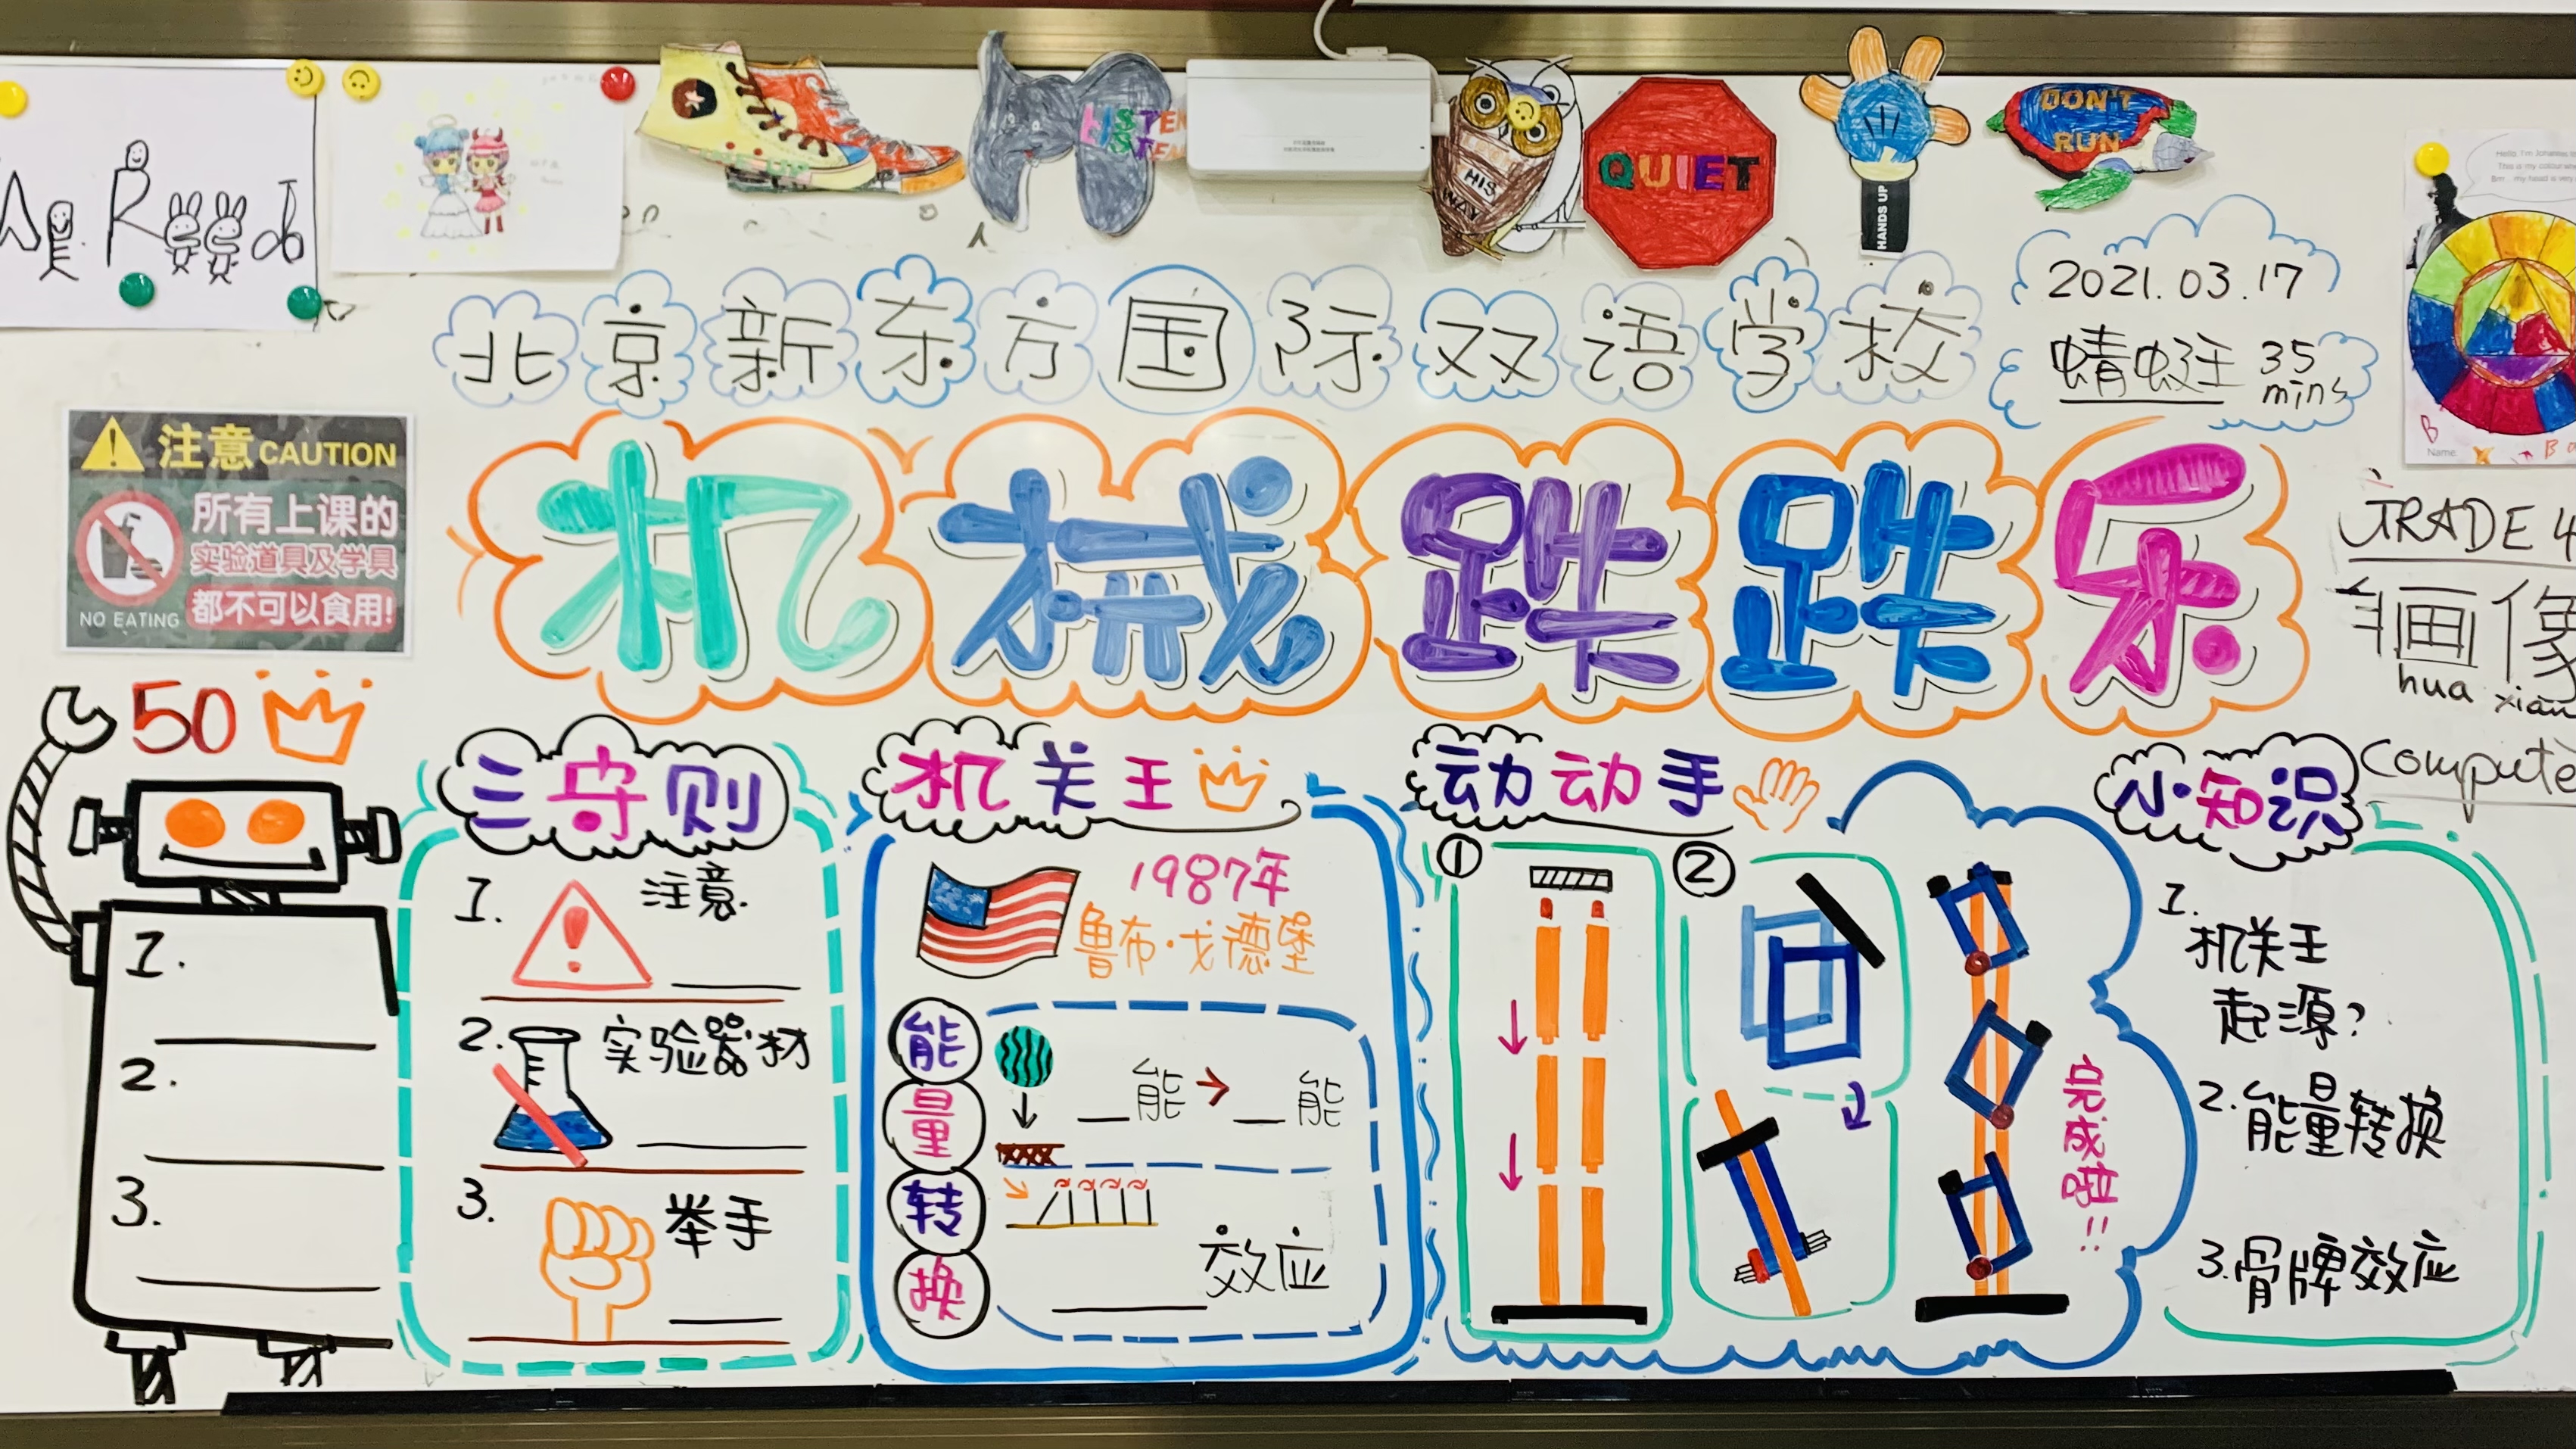 LISTEN
LISTEN
HIS
WAY
QUIET
HANDS UP
DON'T
RUN
北京新东方国际双语学校
2021.03.17
蜻蜓王 35
mins
注意 CAUTION
所有上课的
实验道具及学具
都不可以食用!
NO EATING
机械跌跌乐
GRADE 4
画像
hua xian
Compute
Name
50
1.
2.
3.
三守则
1. 注意
2. 实验器材
3. 举手
机关王
1987年
鲁布·戈德堡
能量转换
能 → 能
效应
动动手
①
②
完成啦!!
小知识
1.
机关王
起源?
2.能量转换
3.骨牌效应